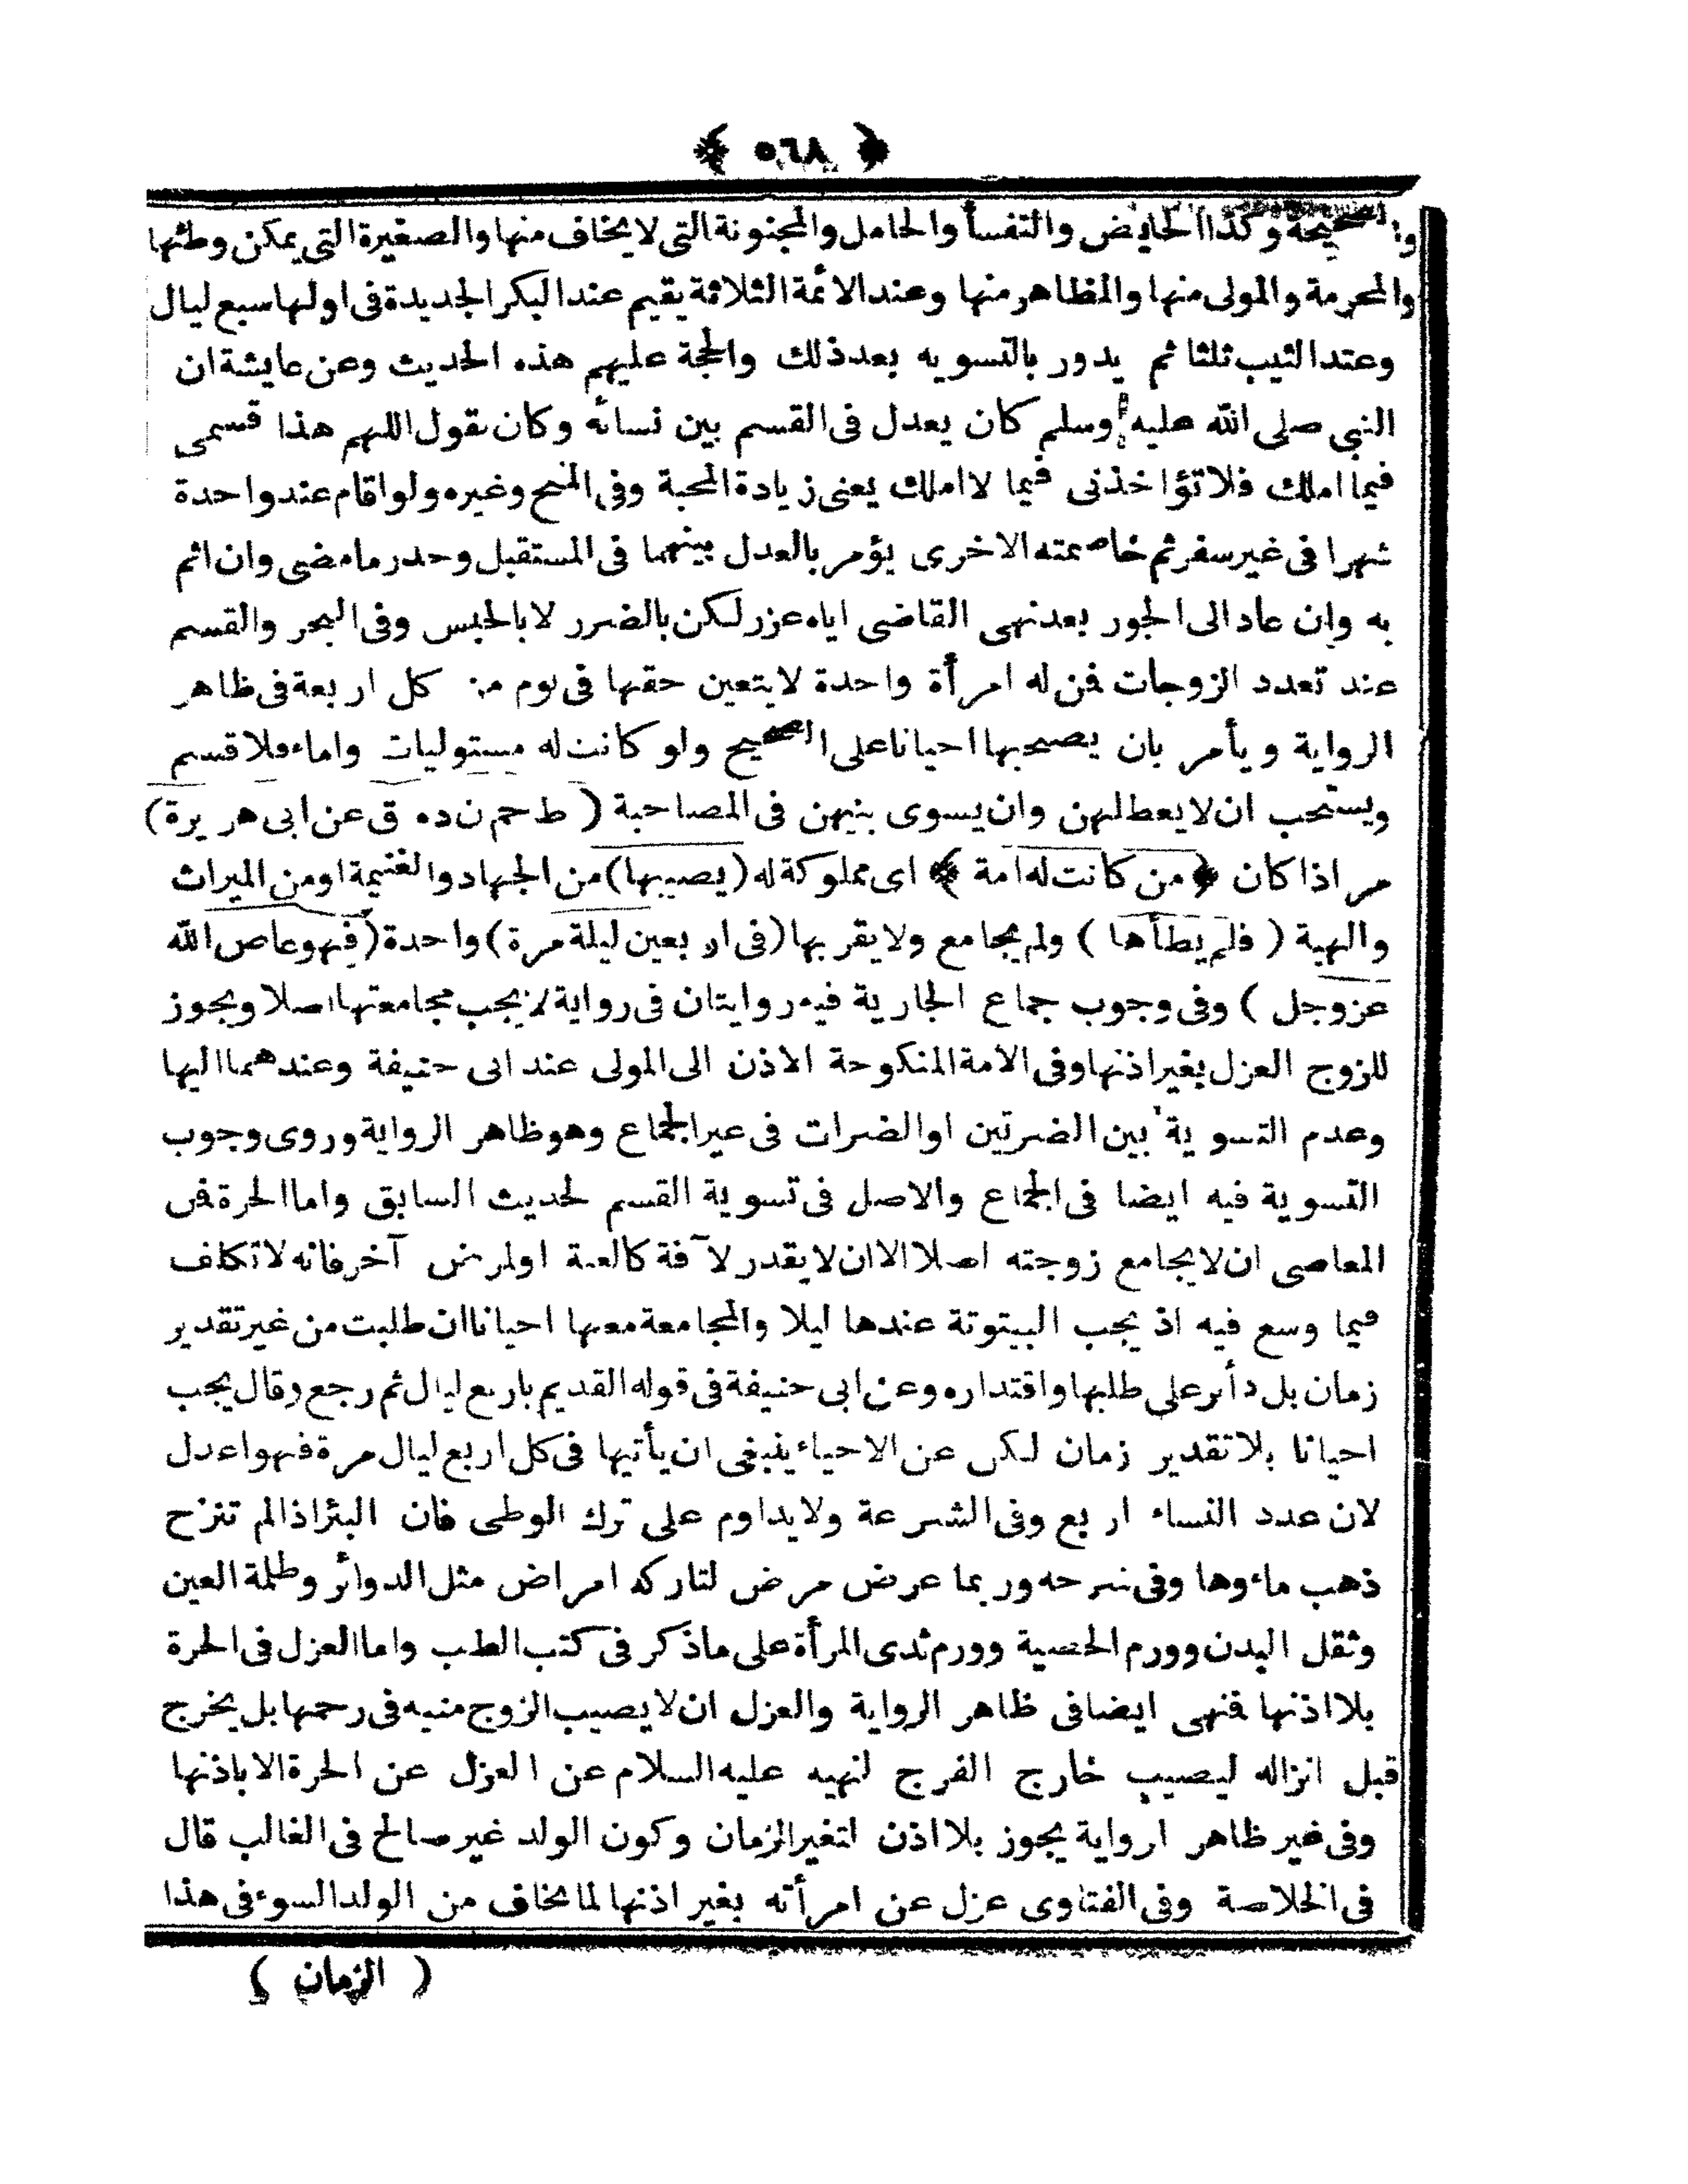 ﴿ ٥٦٨ ﴾
والصحيحة وكذا الحايض والنفسأ والحامل والمجنونة التى لا يخاف منها والصغيرة التى يمكن وطئها
والمحرمة والمولى منها والمظاهر منها وعند الأئمة الثلاثة يقيم عند البكر الجديدة فى اولها سبع ليال
وعند الثيب ثلثا ثم يدور بالتسويه بعد ذلك والحجة عليهم هذه الحديث وعن عايشة ان
النبى صلى الله عليه وسلم كان يعدل فى القسم بين نسائه وكان يقول اللهم هذا قسمى
فيما املك فلا تؤاخذنى فيما لا املك يعنى زيادة المحبة وفى المنح وغيره ولو اقام عند واحدة
شهرا فى غير سفر ثم خاصمته الاخرى يؤمر بالعدل بينهما فى المستقبل وهدر ما مضى وان اثم
به وان عاد الى الجور بعد نهى القاضى اياه عزر لكن بالضرر لا بالحبس وفى البحر والقسم
عند تعدد الزوجات فمن له امرأة واحدة لا يتعين حقها فى يوم من كل اربعة فى ظاهر
الرواية ويأمر بان يصحبها احيانا على الصحيح ولو كانت له مستوليات واماء فلا قسم
ويستحب ان لا يعطلهن وان يسوى بينهن فى المصاحبة ( ط حم ن ده ق عن ابى هريرة )
مر اذا كان ﴿ من كانت له امة ﴾ اى مملوكة له ( يصيبها ) من الجهاد والغنيمة او من الميراث
والهبة ( فلم يطأها ) ولم يجامع ولا يقربها ( فى اربعين ليلة مرة ) واحدة ( فهو عاص الله
عز وجل ) وفى وجوب جماع الجارية فيه روايتان فى رواية لا يجب مجامعتها اصلا ويجوز
للزوج العزل بغير اذنها وفى الامة المنكوحة الاذن الى المولى عند ابى حنيفة وعندهما اليها
وعدم التسوية بين الضرتين او الضرات فى غير الجماع وهو ظاهر الرواية وروى وجوب
التسوية فيه ايضا فى الجماع والاصل فى تسوية القسم لحديث السابق واما الحرة فمن
المعاصى ان لا يجامع زوجته اصلا الا ان لا يقدر لآفة كالعنة او لمرض آخر فانه لا تكلف
فيما وسع فيه اذ يجب البيتوتة عندها ليلا والمجامعة معها احيانا ان طلبت من غير تقدير
زمان بل دأبر على طلبها واقتداره وعن ابى حنيفة فى قوله القديم باربع ليال ثم رجع وقال يجب
احيانا بلا تقدير زمان لكن عن الاحياء ينبغى ان يأتيها فى كل اربع ليال مرة فهو اعدل
لان عدد النساء اربع وفى الشرعة ولا يداوم على ترك الوطى فان البئر اذا لم تنزح
ذهب ماءوها وفى شرحه وربما عرض مرض لتاركه امراض مثل الدوائر وظلمة العين
وثقل البدن وورم الخصية وورم ثدى المرأة على ما ذكر فى كتب الطب واما العزل فى الحرة
بلا اذنها فنهى ايضا فى ظاهر الرواية والعزل ان لا يصيب الزوج منيه فى رحمها بل يخرج
قبل انزاله ليصيب خارج الفرج لنهيه عليه السلام عن العزل عن الحرة الا باذنها
وفى غير ظاهر ارواية يجوز بلا اذن لتغير الزمان وكون الولد غير صالح فى الغالب قال
فى الخلاصة وفى الفتاوى عزل عن امرأته بغير اذنها لما يخاف من الولد السوء فى هذا
( الزمان )